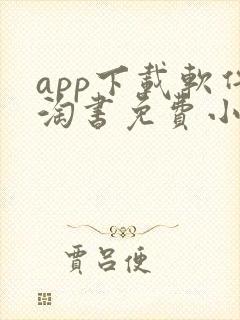 app下載軟件
淘書免費小
賈呂便